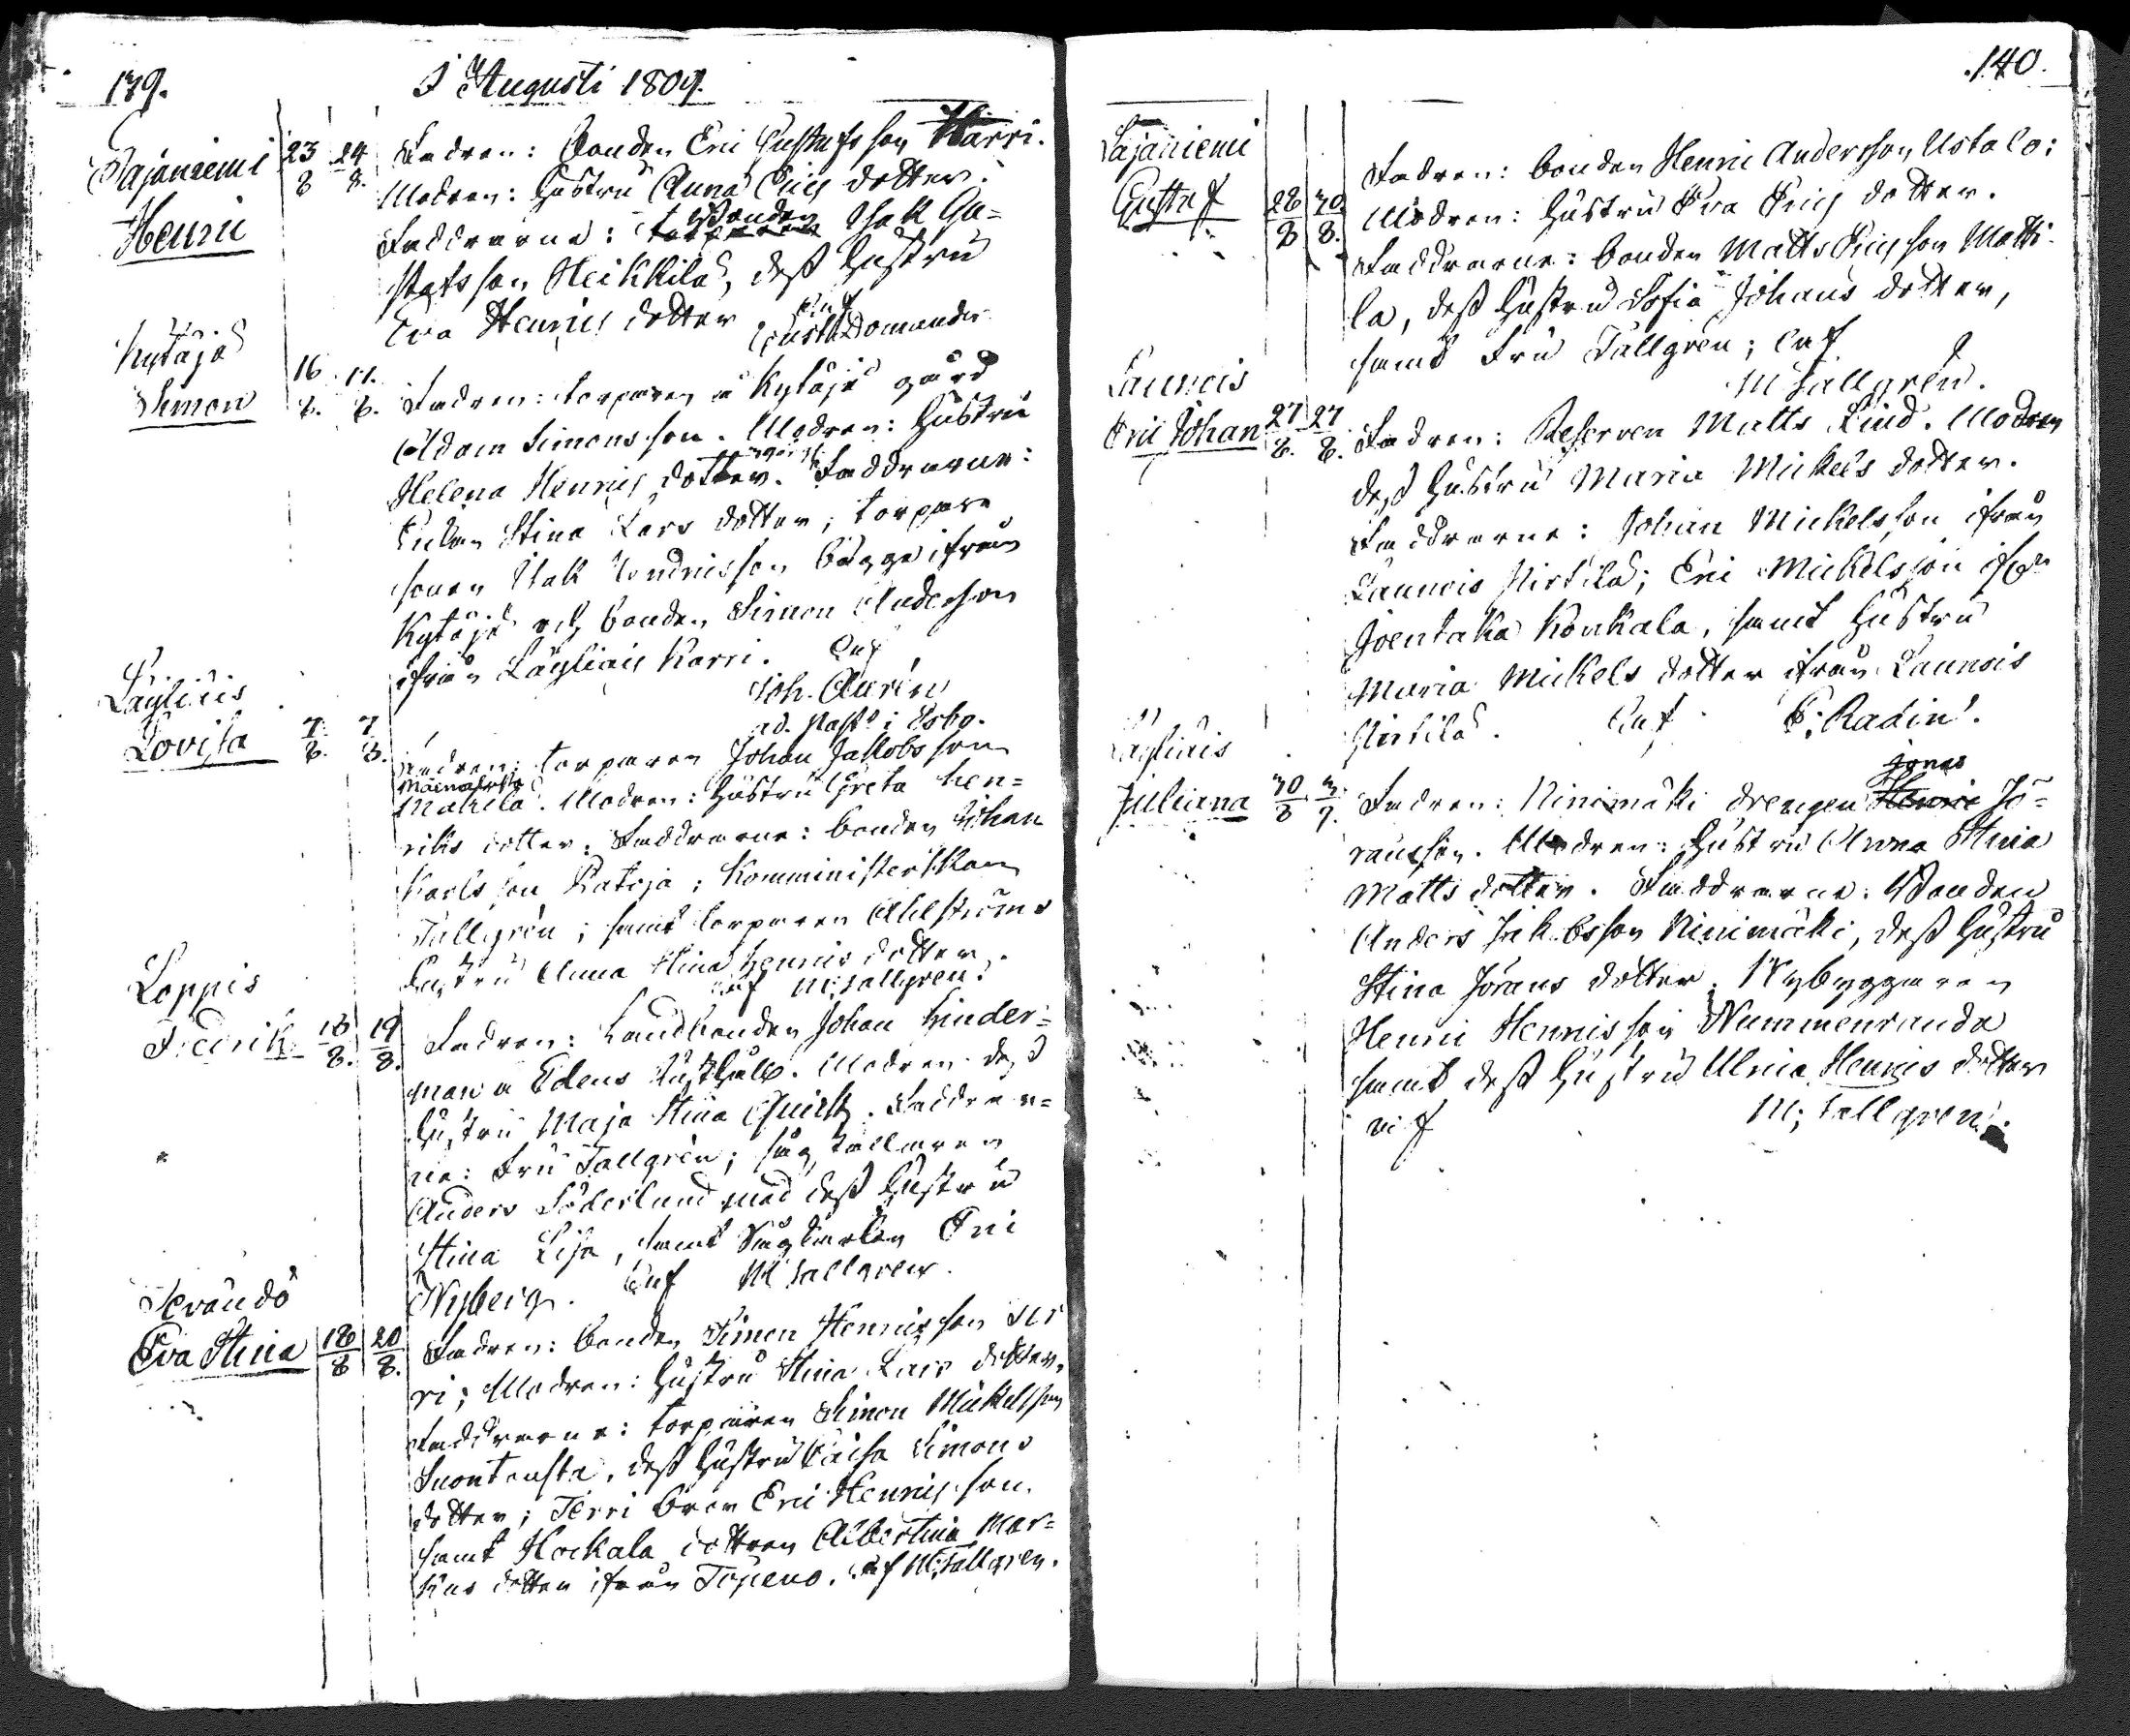 139.
I Augusti 1809.
Sajaniemi 23/8 24/8. Fadren: bonden Eric Gustafsson Harri.
Henric
Modren: Hustru Anna Erics dotter.
Faddrarne: Bonden Isak Gu=
stafsson Heikkilä, dess Hustru
Eva Henrics dotter. Enf.
Gust. Domander
Kytäjä
Simon 16/8. 17/8. Fadren: torparen å Kytäjä gård
Adam Simonsson. Modren: Hustru
Helena Henrics dotter. Faddrarne:
Enkan Stina Lars dotter, torpare
sonen Isak Hendricsson bägge ifrån
Kytäjä och bonden Simon Andersson
ifrån Läyliäis Karri. Enf
Joh. Aurén
ad. Past. i Esbo.
Läyliäis
Lovisa 7/8. 7/8. Fadren: torparen Johan Jakobsson
Mäkilä. Modren: Hustru Greta Hen=
riks dotter. Faddrarne: bonden Johan
Karlsson Ratoja; Komministerskan
Tallgrén; samt torparen Ahlströms
Hustru Anna Stina Henrics dotter.
enf M: Tallgren.
Loppis
Fredrik 18/8. 19/8. Fadren: Landbonden Johan Hinder=
man å Edens Rusthåll. Modren dess
Hustru Maja Stina Quick. Faddrar=
ne: Fru Tallgrén; sågställaren
Anders Söderlund med dess Hustru
Stina Lisa, samt Sågkarlen Eric
Nyberg. Enf M Tallgren.
Teväudö
Eva Stina 18/8 20/8. Fadren: bonden Simon Henricsson Ter
ri; Modren: Hustru Stina Lars dotter.
Faddrarne: torparen Simon Mickelsson
Suontausta, dess Hustru Caisa Simons
dotter; Terri bror Eric Henricsson.
samt Hockala dottren Albertina Mar=
kus dotter ifrån Topeno. enf M: Tallgren.
140.
Sajaniemi
Gustaf 28/8 30/8. Fadren: bonden Henric Andersson Ustalo:
Modren: Hustru Eva Erics dotter.
Faddrarne: bonden Matts Ericsson Matti-
la, dess Hustru Sofia Johans dotter,
samt Fru Tallgrén; enf.
M Tallgrén.
Launois
Eric Johan 27/8. 27/8. Fadren: Reserven Matts Lind. Modren
dess Hustru Maria Mickels dotter.
Faddrarne: Johan Mickelsson ifrån
Launois Pirtilä; Eric Mickelsson ifrån
Joentaka Konkala, samt Hustru
Maria Mickels dotter ifrån Launois
Pirtilä. Enf E: Radin.
Läyliäis
Juliana 30/8 3/9. Fadren: Ninimäki drengen Jonas Jö=
ransson. Modren: Hustru Anna Stina
Matts dotter. Faddrarne: Bonden
Anders Jakobsson Ninimäki, dess Hustru
Stina Jörans dotter. Nybyggaren
Henric Henricsson Nummenranda
samt dess Hustru Ulrica Henrics dotter
enf M; Tallgren.